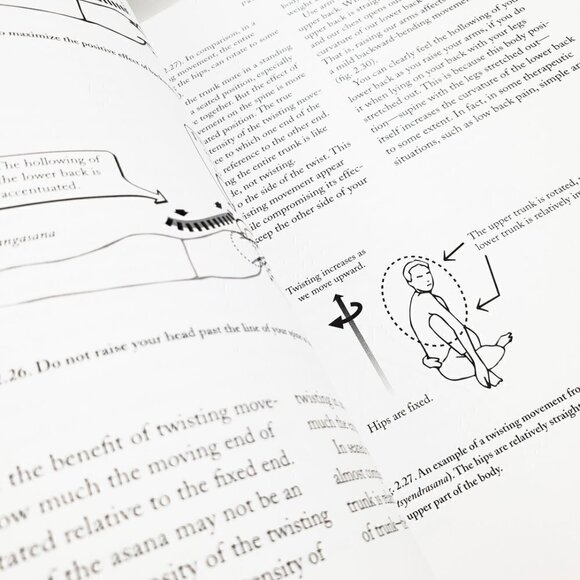 to maximize the positive effect
The hollowing of
the lower back is
accentuated.
angasana
.26. Do not raise your head past the line of your
the benefit of twisting move-
ow much the moving end of
tated relative to the fixed end.
of the asana may not be an
osity of the twisting
ensity of
.27). In comparison, in a
g movement, the entire
e hips, can rotate to some
the trunk more in a standing
a seated position, especially
e together. But the effect of
vement on the spine is more
ated position. The true
tensity of the twisting move-
ee to which one end of the
reference to the other end.
ng the entire trunk is like
le, not twisting.
o the side of the twist. This
isting movement appear
ile compromising its effec-
keep the other side of your
twisting
much the
In seated
almost com
trunk is
of trunk
use
upper back. W
and our chest opens
That is, raising our arms affects
a mild backward-bending movement
(fig 2.30).
You can clearly feel the hollowing of your
lower back as you raise your arms, if you do
it when lying on your back with your legs
stretched out. This is because this body posi-
tion—supine with the legs stretched out—
itself increases the curvature of the lower back
to some extent. In fact, in some therapeutic
situations, such as low back pain, simple
Twisting increases as
we move upward.
The upper trunk is rotated,
lower trunk is relatively
Hips are fixed.
2.27. An example of a twisting movement from
tsyendrasana). The hips are relatively straight
upper part of the body.